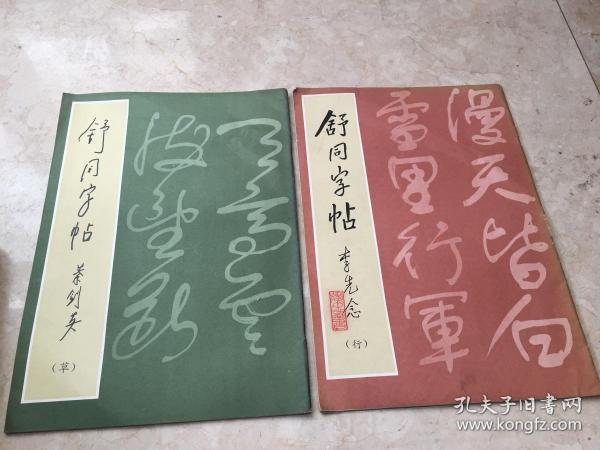 舒同字帖
葉剑英
（草）
天高云
淡望断
舒同字帖
李先念
（行）
漫天皆白
雪里行軍
孔夫子旧书网
www.kongfz.com